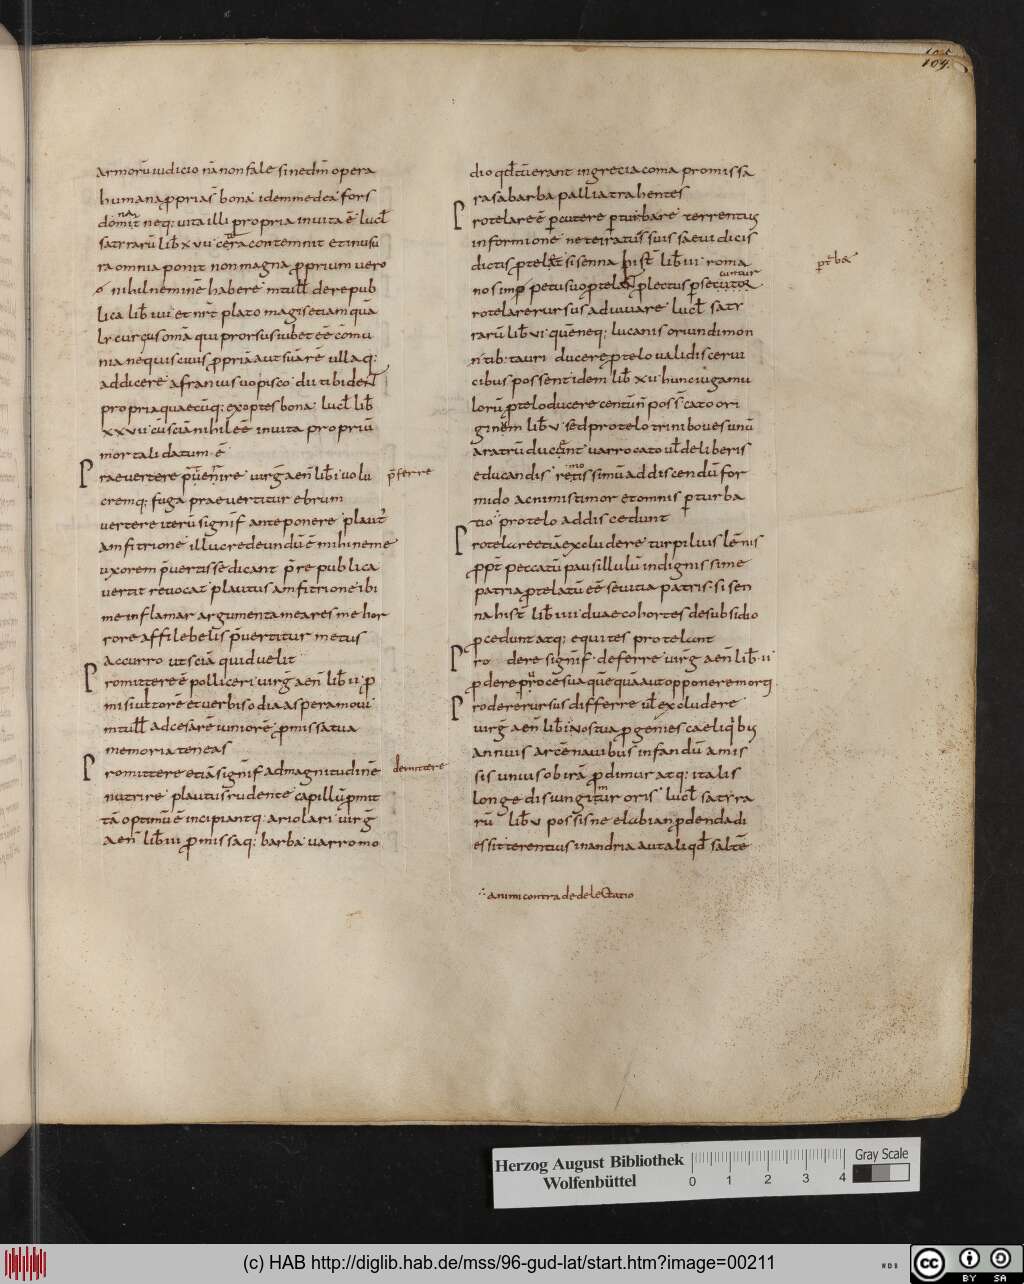 105
104.
armorū iudicio nā non fale sinedm̄ opera
humana ꝓprias bona idemmedea fors
domit neq; uita illi propria inuita ē lucł
satrarū lib̄ xvii cetera contemnit et inusu
ra omnia ponit non magna ꝓprium uero
nihil neminē habere m tull de repub
lica lib̄ iiii et nr̄t plato magis etiam quā
lycurgus omā qui prorsus iubet eē cōmu
nia nequis ciuis ꝓpriā aut suā rē ulla q;
addicere afranius uopisco dii tibi den
propria quaecūq; exoptes bona lucł lib̄
xxvii cū sciā nihil eē inuita propriū
mortali datum ē
Praeuertere p̄uenire uirg̅ aen̄ lib̄ i uolu
p̄ferre
cremq; fuga praeuertitur ebrum
uertere iterū signif̄ anteponere plaut̄
amfitrione illuc redeundū ē mihi neme
uxorem p̄uertisse dicant p̄ re publica
uertit reuocat plautus amfitrione ibi
me inflamar argumenta meares me hor
rore affi lebelis p̄uertitur metus
accurro ut sciā quid uelit
Promittere ē polliceri uirg̅ aen̄ lib̄ ii ꝓ
misi ultorē et uerbis odia aspera moui
m tull ad cesarē iuniorē ꝓmissa tua
memoria teneas
Promittere etiā signif̄ ad magnitudinē
demittere
nutrire plautus rudente capillū ꝓmit
tā optimū ē incipiantq; ariolari uirg̅
aen̄ lib̄ iii ꝓmissaq; barba uarro mo
dio qd̄ tū erant in grecia coma promissa
rasa barba pallia trahentes
Protelare ē ꝑcutere ꝑturbare terrentius
ꝑt̄bā
informione ne te iratus suis saeui dicis
dictis ꝓtelet sisenna hist̄ lib̄ iii roma
nos imp̄ petu suo ꝓtelant ꝓlectus ꝑsecutor
cuntur
rotelare rursus adiuuare lucł satr
rarū lib̄ vi quē neq; lucanis oriundi mon
tib: tauri ducere ꝓtelo ualidis cerui
cibus possent idem lib̄ xii hunc iugamu
lorū ꝓtelo ducere centūn̄ poss̄ cato ori
ginem lib̄ v sed protelo trini boues unū
aratrū ducūnt uarro cato uł de liberis
educandis remotissimū ad discendū for
mido ac nimis timor et omnis ꝑturba
tio protelo ad discedunt
Protelare etiā excludere turpilius lēnis
ꝓpt̄ peccatū pausillulū indignissime
patria ꝓtelatū eē seuitia patris sisen
na hist̄ lib̄ iiii duae cohortes de subsidio
ꝓcedunt atq; equites protelant
Pro dere signif̄ deferre uirg̅ aen̄ lib̄ ii
ꝓdere p̄ uoce sua quē quā aut opponere morti
Prodere rursus differre uł excludere
uirg̅ aen̄ lib̄ i nos tua ꝓgenies caeli qb̄
annuis arcē nauibus infandū amis
sis unius ob irā ꝓdimur atq; italis
longe disiungimur oris lucł satrra
rū lib̄ v possisne elabi an ꝓdenda di
es sit terentius in andria aut aliqd̄ saltē
∴ animi contra de delectatio
Herzog August Bibliothek
Wolfenbüttel
0 1 2 3 4
Gray Scale
(c) HAB http://diglib.hab.de/mss/96-gud-lat/start.htm?image=00211
WDB
cc BY SA